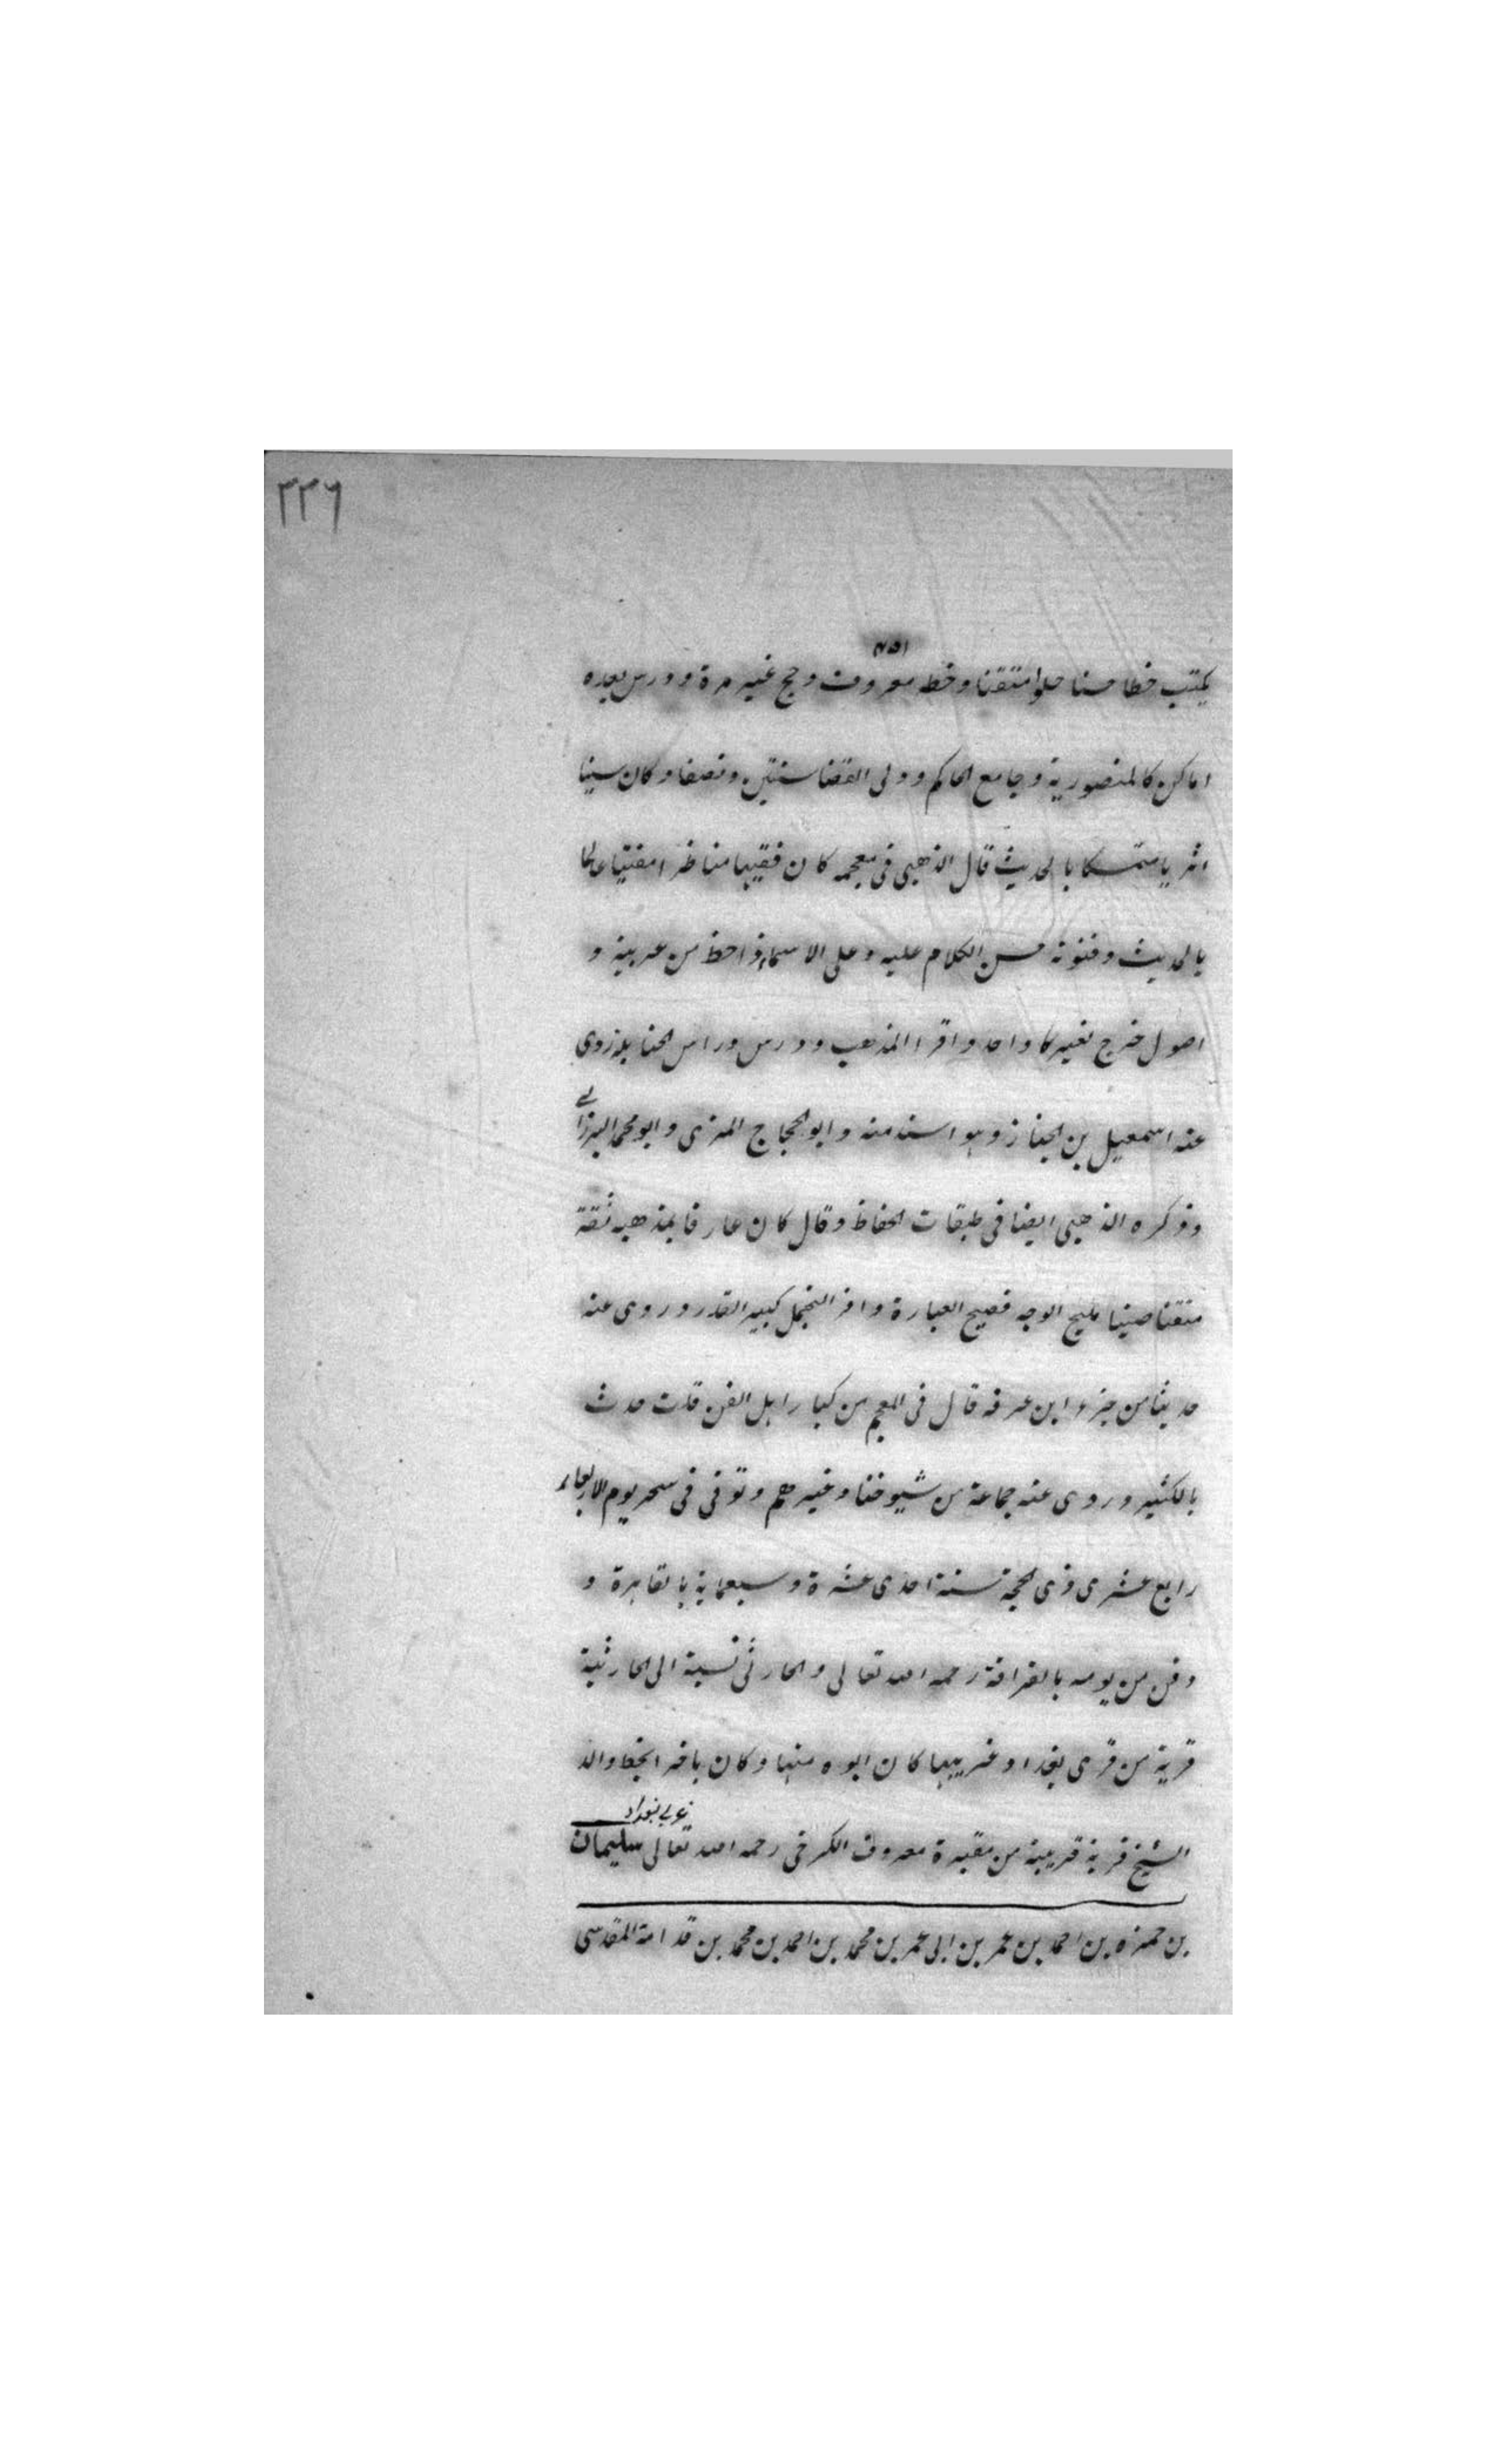 ٢٢٦
٧٥١
يكتب خطا حسنا حلوا متقنا وخطه معروف وحج غير مرة ودرس بعده
اماكن كالمنصورية وجامع الحاكم وولى القضا سنتين ونصفا وكان سينا
اثريا متمسكا بالحديث قال الذهبى فى معجمه كان فقيها مناظرا مفتيا عالما
بالحديث وفنونه حسن الكلام عليه وعلى الاسماء ذا حظ من عربية و
اصول خرج لغير واحد واقرا المذهب ودرس وراس الحنابله روى
عنه اسمعيل بن الخباز وهو اسند منه وابو الحجاج المزى وابو محمد البرزالے
وذكره الذهبى ايضا فى طبقات الحفاظ وقال كان عارفا بمذهبه ثقة
متقنا صينا مليح الوجه فصيح العبارة وافر التجمل كبير القدر وروى عنه
حديثا من جزء ابن عرفه قال فى المعجم من كبار اهل الفن قلت حدث
بالكثير وروى عنه جماعة من شيوخنا وغيرهم وتوفى فى سحر يوم الاربعاء
رابع عشرى ذى الحجة سنة احدى عشرة وسبعماية بالقاهرة و
دفن من يومه بالقرافة رحمه الله تعالى والحارثى نسبة الى الحارثية
قرية من قرى بغداد غربيها كان ابوه منها وكان باخر الخط والد
غربى بغداد
الشيخ قرية قريبة من مقبرة معروف الكرخى رحمه الله تعالى سليمان
بن حمزه بن احمد بن عمر بن ابى عمر بن محمد بن احمد بن محمد بن قدامة المقدسى